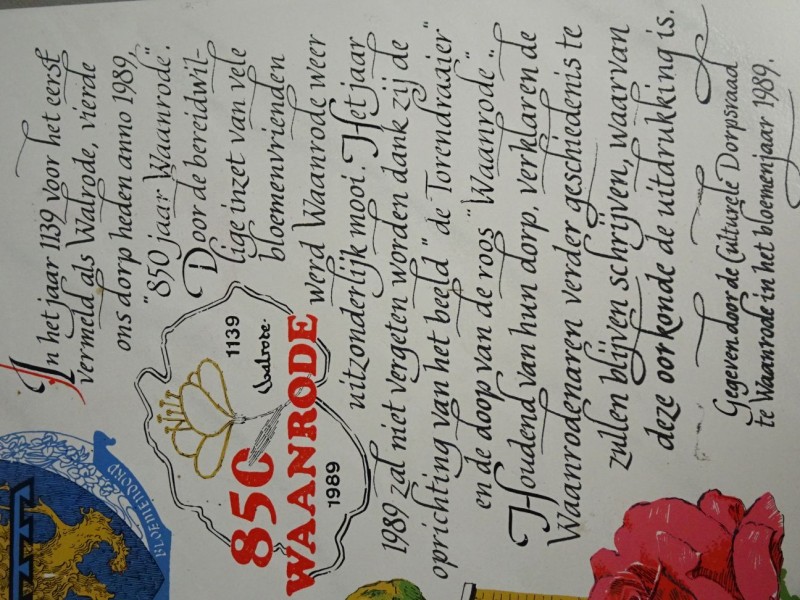 In het jaar 1139 voor het eerst
vermeld als Walrode, vierde
ons dorp heden anno 1989,
"850 jaar Waanrode".
Door de bereidwil-
lige inzet van vele
bloemenvrienden
werd Waanrode weer
uitzonderlijk mooi. Het jaar
1989 zal niet vergeten worden dank zij de
oprichting van het beeld "de Torendraaier"
en de doop van de roos "Waanrode"..
Houdend van hun dorp, verklaren de
Waanrodenaren verder geschiedenis te
zullen blijven schrijven, waarvan
deze oorkonde de uitdrukking is.
Gegeven door de Culturele Dorpsraad
te Waanrode in het bloemenjaar 1989.
BLOEMENDORP
1139
Walrode.
850
WAANRODE
1989